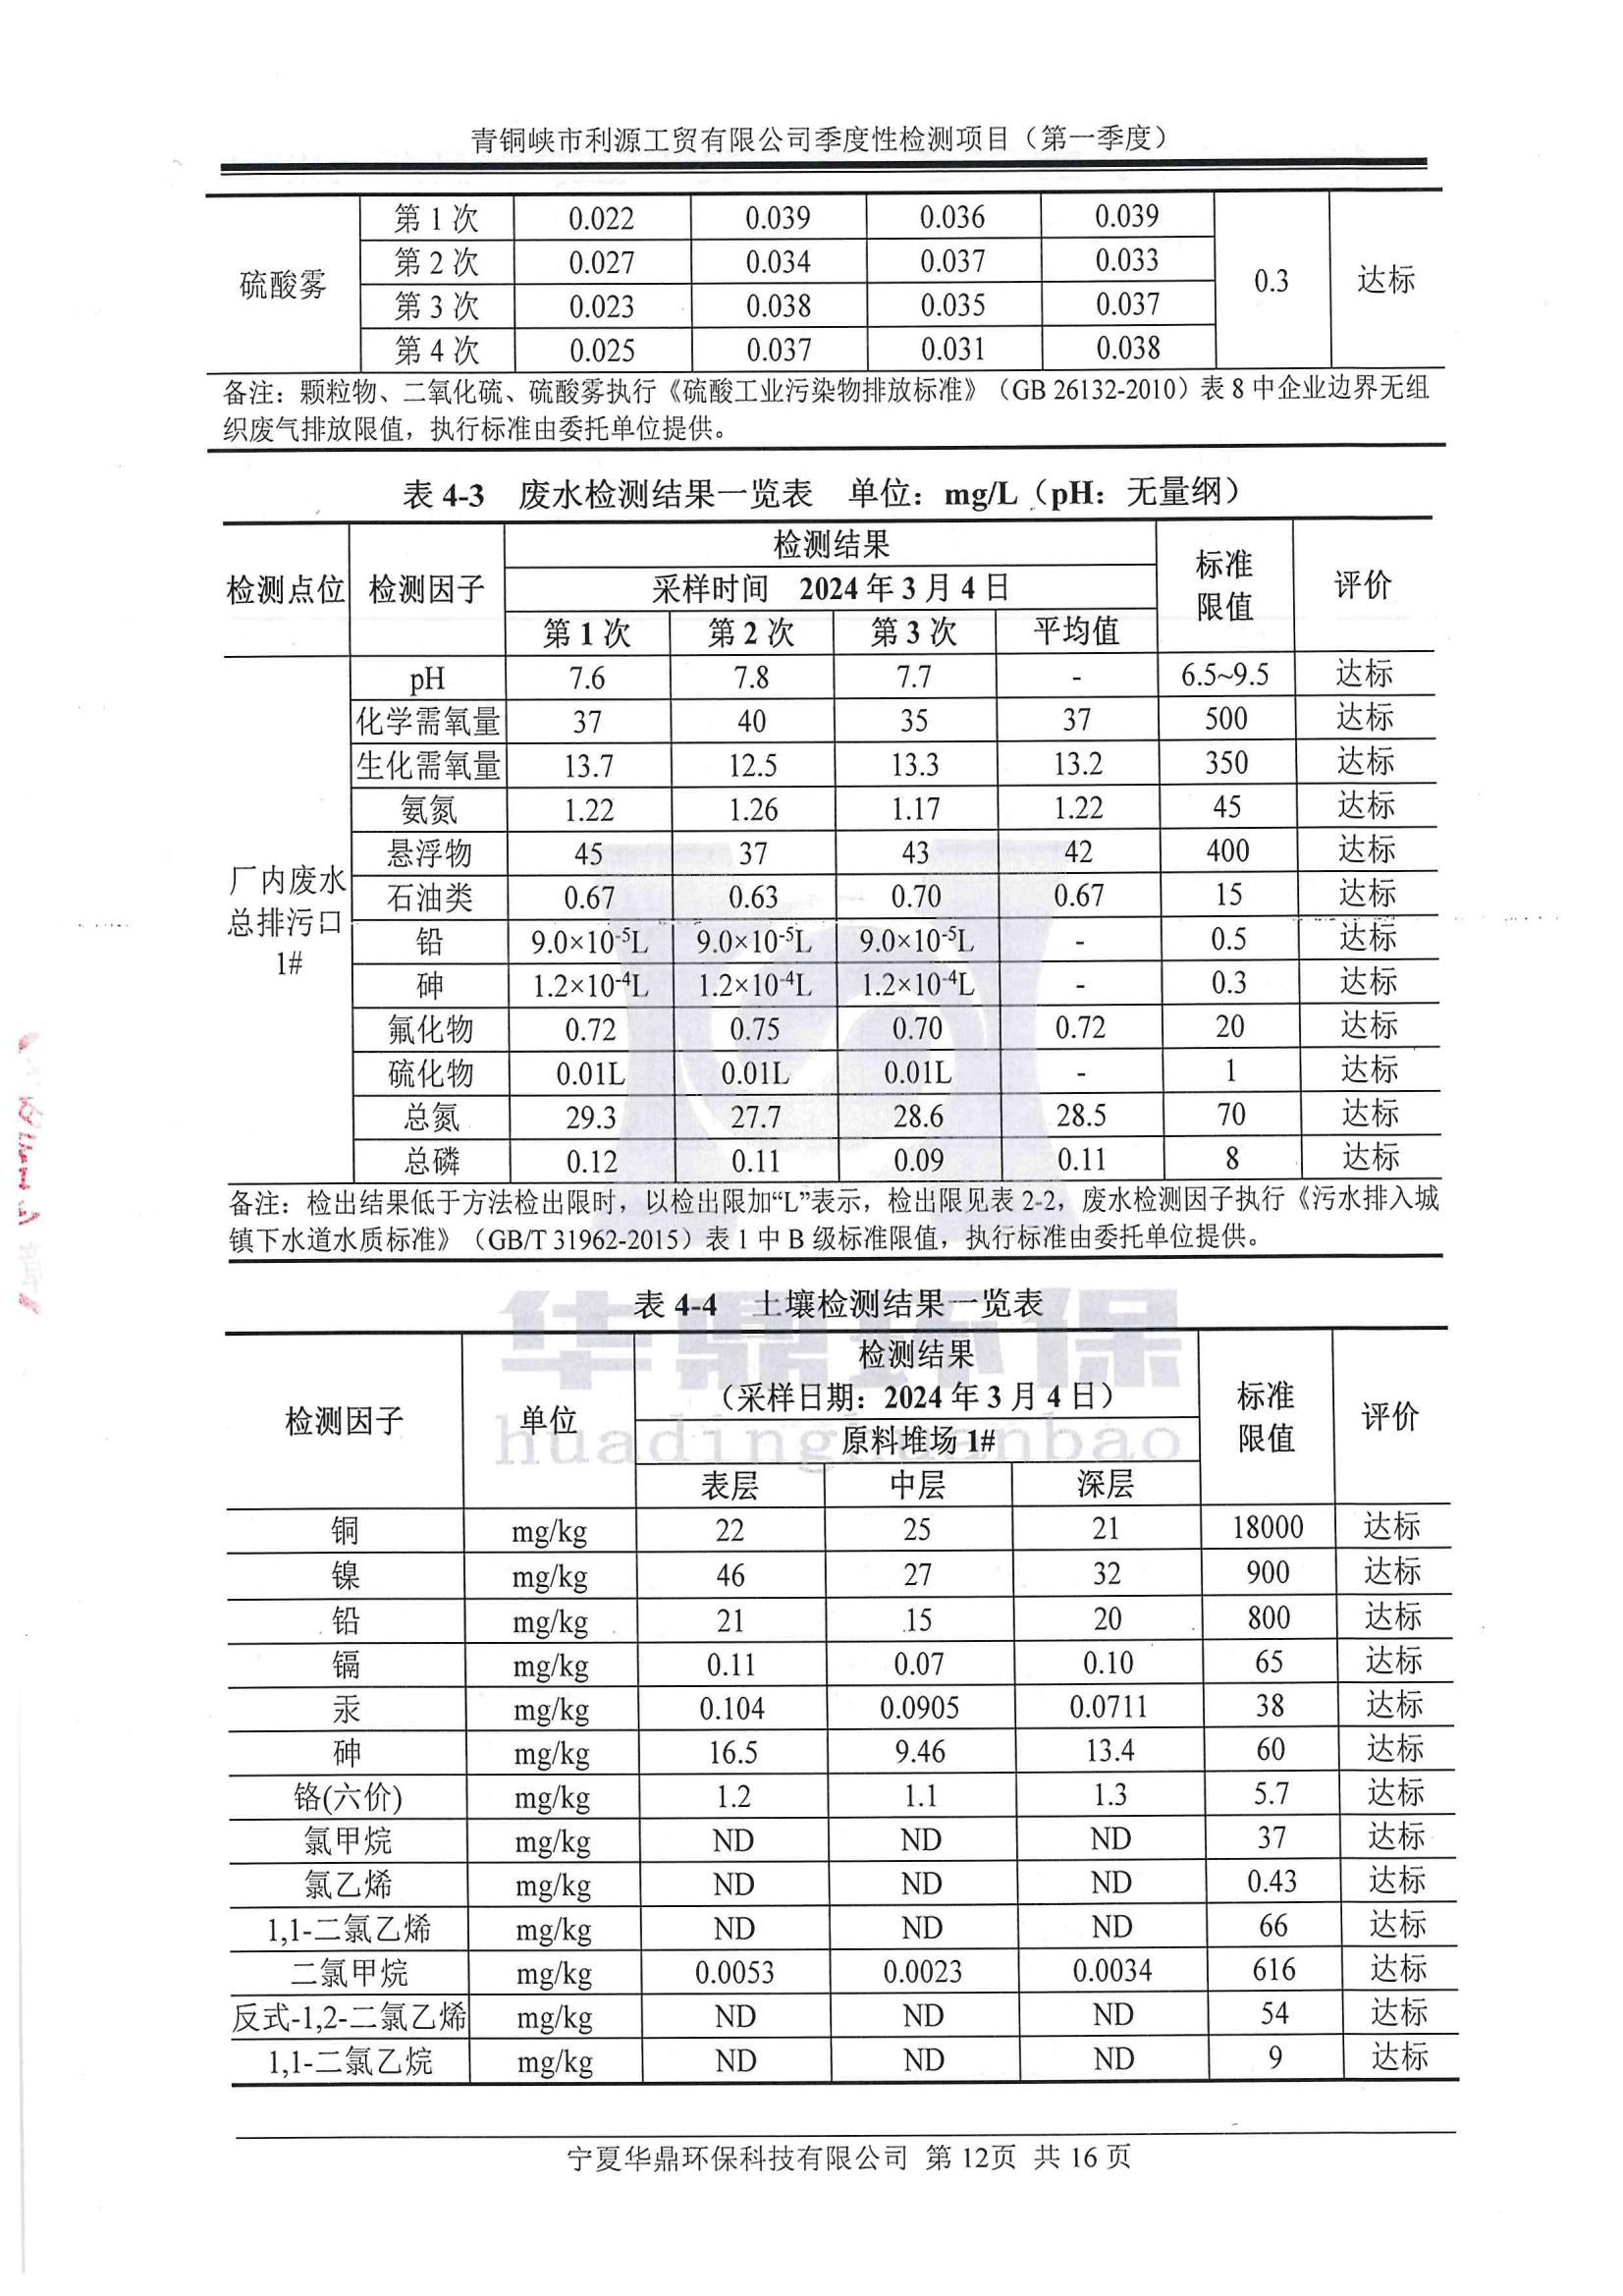 青铜峡市利源工贸有限公司季度性检测项目（第一季度）
硫酸雾 第1次 0.022 0.039 0.036 0.039 0.3 达标
第2次 0.027 0.034 0.037 0.033
第3次 0.023 0.038 0.035 0.037
第4次 0.025 0.037 0.031 0.038
备注：颗粒物、二氧化硫、硫酸雾执行《硫酸工业污染物排放标准》（GB 26132-2010）表 8 中企业边界无组
织废气排放限值，执行标准由委托单位提供。
表 4-3 废水检测结果一览表 单位：mg/L（pH：无量纲）
检测点位 检测因子 检测结果 标准限值 评价
采样时间 2024 年 3 月 4 日
第1次 第2次 第3次 平均值
厂内废水总排污口1# pH 7.6 7.8 7.7 - 6.5~9.5 达标
化学需氧量 37 40 35 37 500 达标
生化需氧量 13.7 12.5 13.3 13.2 350 达标
氨氮 1.22 1.26 1.17 1.22 45 达标
悬浮物 45 37 43 42 400 达标
石油类 0.67 0.63 0.70 0.67 15 达标
铅 9.0×10⁻⁵L 9.0×10⁻⁵L 9.0×10⁻⁵L - 0.5 达标
砷 1.2×10⁻⁴L 1.2×10⁻⁴L 1.2×10⁻⁴L - 0.3 达标
氟化物 0.72 0.75 0.70 0.72 20 达标
硫化物 0.01L 0.01L 0.01L - 1 达标
总氮 29.3 27.7 28.6 28.5 70 达标
总磷 0.12 0.11 0.09 0.11 8 达标
备注：检出结果低于方法检出限时，以检出限加“L”表示，检出限见表 2-2，废水检测因子执行《污水排入城
镇下水道水质标准》（GB/T 31962-2015）表 1 中 B 级标准限值，执行标准由委托单位提供。
华鼎环保
huadinghuanbao
表 4-4 土壤检测结果一览表
检测因子 单位 检测结果 标准限值 评价
（采样日期：2024 年 3 月 4 日）
原料堆场 1#
表层 中层 深层
铜 mg/kg 22 25 21 18000 达标
镍 mg/kg 46 27 32 900 达标
铅 mg/kg 21 15 20 800 达标
镉 mg/kg 0.11 0.07 0.10 65 达标
汞 mg/kg 0.104 0.0905 0.0711 38 达标
砷 mg/kg 16.5 9.46 13.4 60 达标
铬(六价) mg/kg 1.2 1.1 1.3 5.7 达标
氯甲烷 mg/kg ND ND ND 37 达标
氯乙烯 mg/kg ND ND ND 0.43 达标
1,1-二氯乙烯 mg/kg ND ND ND 66 达标
二氯甲烷 mg/kg 0.0053 0.0023 0.0034 616 达标
反式-1,2-二氯乙烯 mg/kg ND ND ND 54 达标
1,1-二氯乙烷 mg/kg ND ND ND 9 达标
宁夏华鼎环保科技有限公司 第 12页 共 16 页